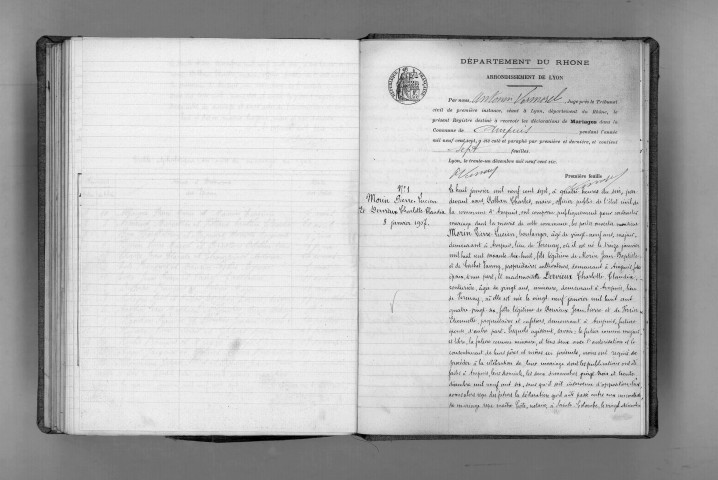 DÉPARTEMENT DU RHONE
ARRONDISSEMENT DE LYON
RÉPUBLIQUE FRANÇAISE
Par nous, Antonin Vermorel, Juge près le Tribunal
civil de première instance, séant à Lyon, département du Rhône, le
présent Registre destiné à recevoir les déclarations de Mariages dans la
Commune de Ampuis pendant l'année
mil neuf cent sept, a été coté et paraphé par première et dernière, et contient
sept feuilles.
Lyon, le trente-un décembre mil neuf cent six.
Première feuille
N° 1
Morin Pierre Lucien
Et Dervieux Charlotte Claudia
8 janvier 1907.
Le huit janvier mil neuf cent sept, à quatre heures du soir, par
devant nous Charles, maire, officier public de l'état civil de
la commune d'Ampuis, ont comparu publiquement pour contracter
mariage dans la maison de cette commune, les parties
Morin Pierre Lucien, boulanger, âgé de vingt-neuf ans, majeur,
demeurant à Ampuis, lieu de Verenay, où il est né le treize janvier
mil huit cent soixante dix-huit, fils légitime de Morin Jean Baptiste
et de propriétaires cultivateurs, demeurant à Ampuis, futur
époux, d'une part, et mademoiselle Dervieux Charlotte Claudia,
couturière, âgée de vingt ans, mineure, demeurant à Ampuis, lieu
de Verenay, où elle est née le vingt neuf janvier mil huit cent
quatre vingt six, fille légitime de Dervieux Jean Pierre et de
propriétaires et demeurant à Ampuis, future
épouse, d'autre part. Lesquels agissant, savoir: le futur comme majeur
et libre, la future comme mineure, et tous deux avec l'autorisation et le
consentement de leurs pères et mères ici présents, nous ont requis de
procéder à la célébration de leur mariage dont les publications ont été
faites à Ampuis, leur domicile, les deux dimanches vingt-trois et trente
décembre mil neuf cent six, sans qu'il soit intervenu d'opposition. Nous
avons alors reçu des futurs la déclaration qu'il a été passé entre eux un contrat
de mariage reçu maître notaire, à Sainte Colombe, le vingt décembre